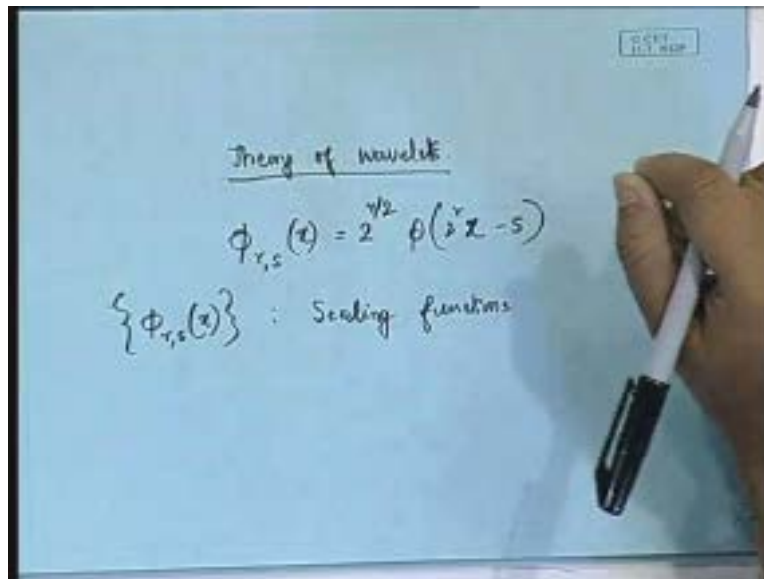 Theory of wavelets
φ_{r,s}(x) = 2^{r/2} φ(2^r x - s)
{φ_{r,s}(x)} : Scaling functions